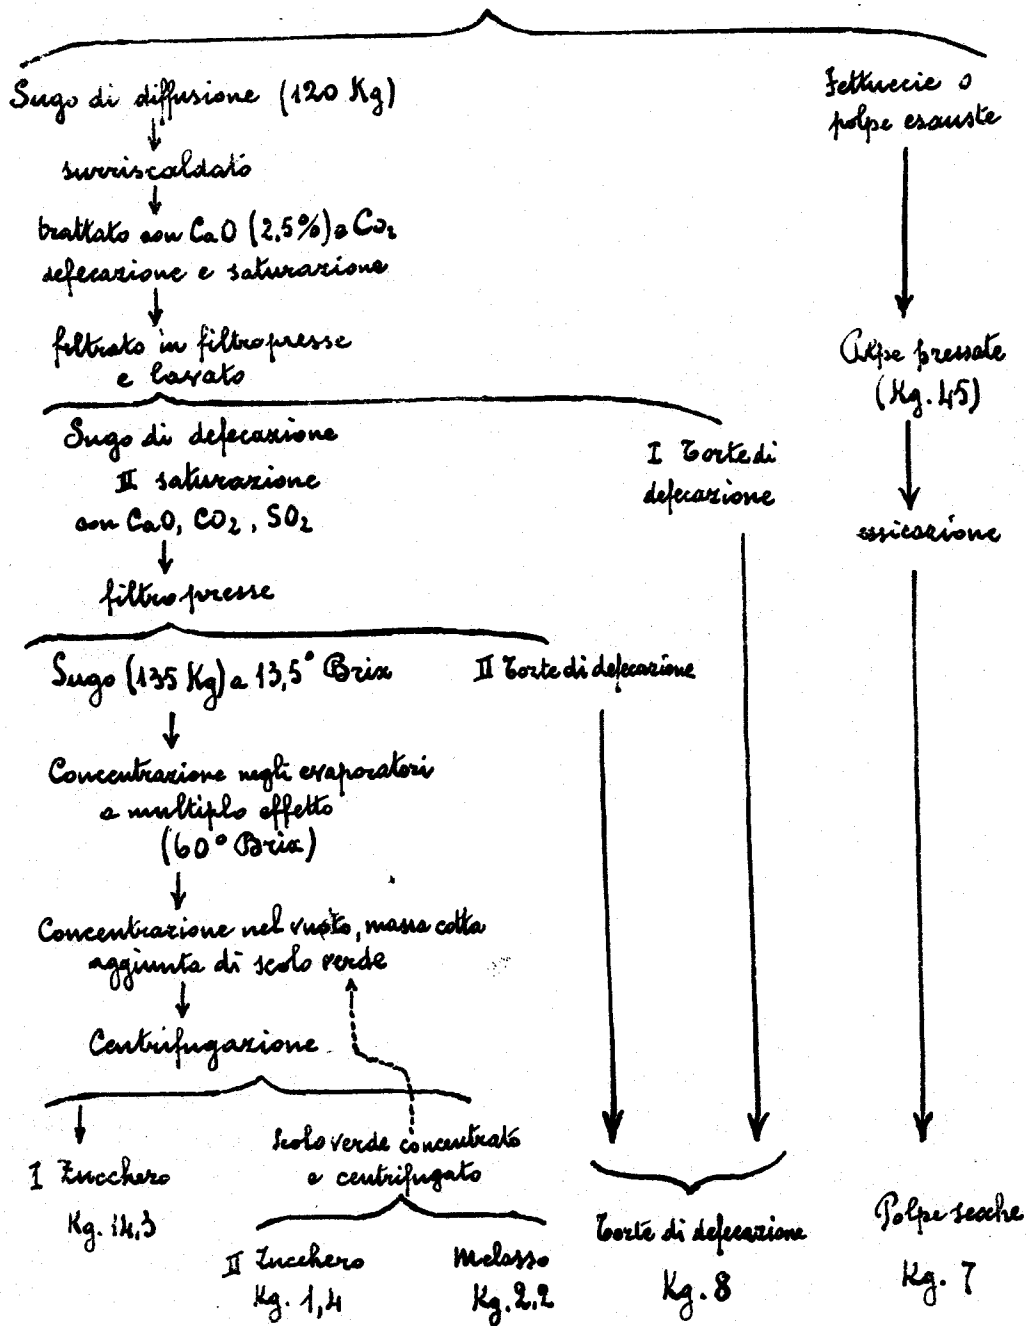 Sugo di diffusione (120 Kg)
surriscaldato
trattato con CaO (2,5%) e CO₂
defecazione e saturazione
filtrato in filtropresse
e lavato
Sugo di defecazione
II saturazione
con CaO, CO₂, SO₂
filtro presse
Sugo (135 Kg) a 13,5° Brix
Concentrazione negli evaporatori
a multiplo effetto
(60° Brix)
Concentrazione nel vuoto, massa cotta
aggiunta di scolo verde
Centrifugazione
I Zucchero
Kg. 14,3
Scolo verde concentrato
e centrifugato
II Zucchero
Kg. 1,4
Melasso
Kg. 2,2
II Torte di defecazione
I Torte di
defecazione
Torte di defecazione
Kg. 8
Fettuccie o
polpe esauste
Polpe pressate
(Kg. 45)
essicazione
Polpe secche
Kg. 7